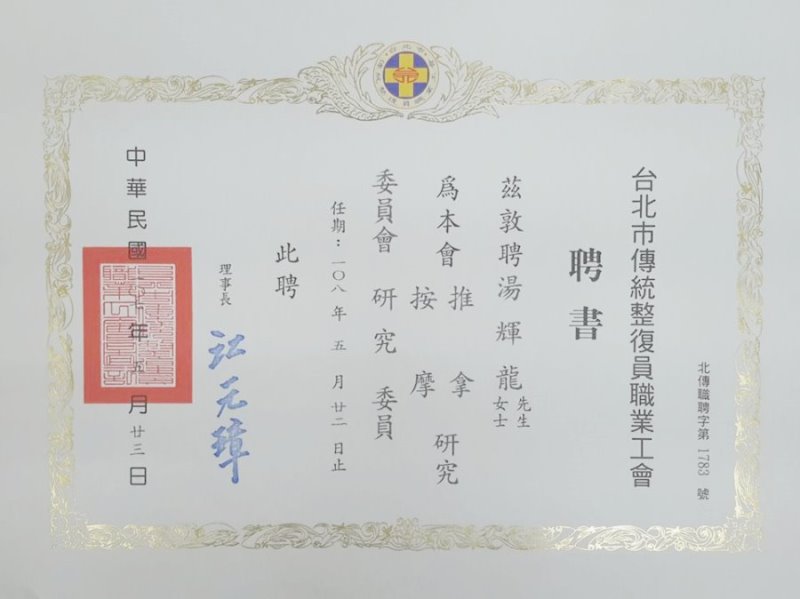 北傳職聘字第 1783 號
台北市傳統整復員職業工會
聘書
茲敦聘湯輝龍 先生 女士
爲本會 推拿 按摩 研究
委員會 研究 委員
任期：一〇八年 五 月 廿二 日止
此聘
理事長 江元璋
中華民國 年 五 月 廿三 日